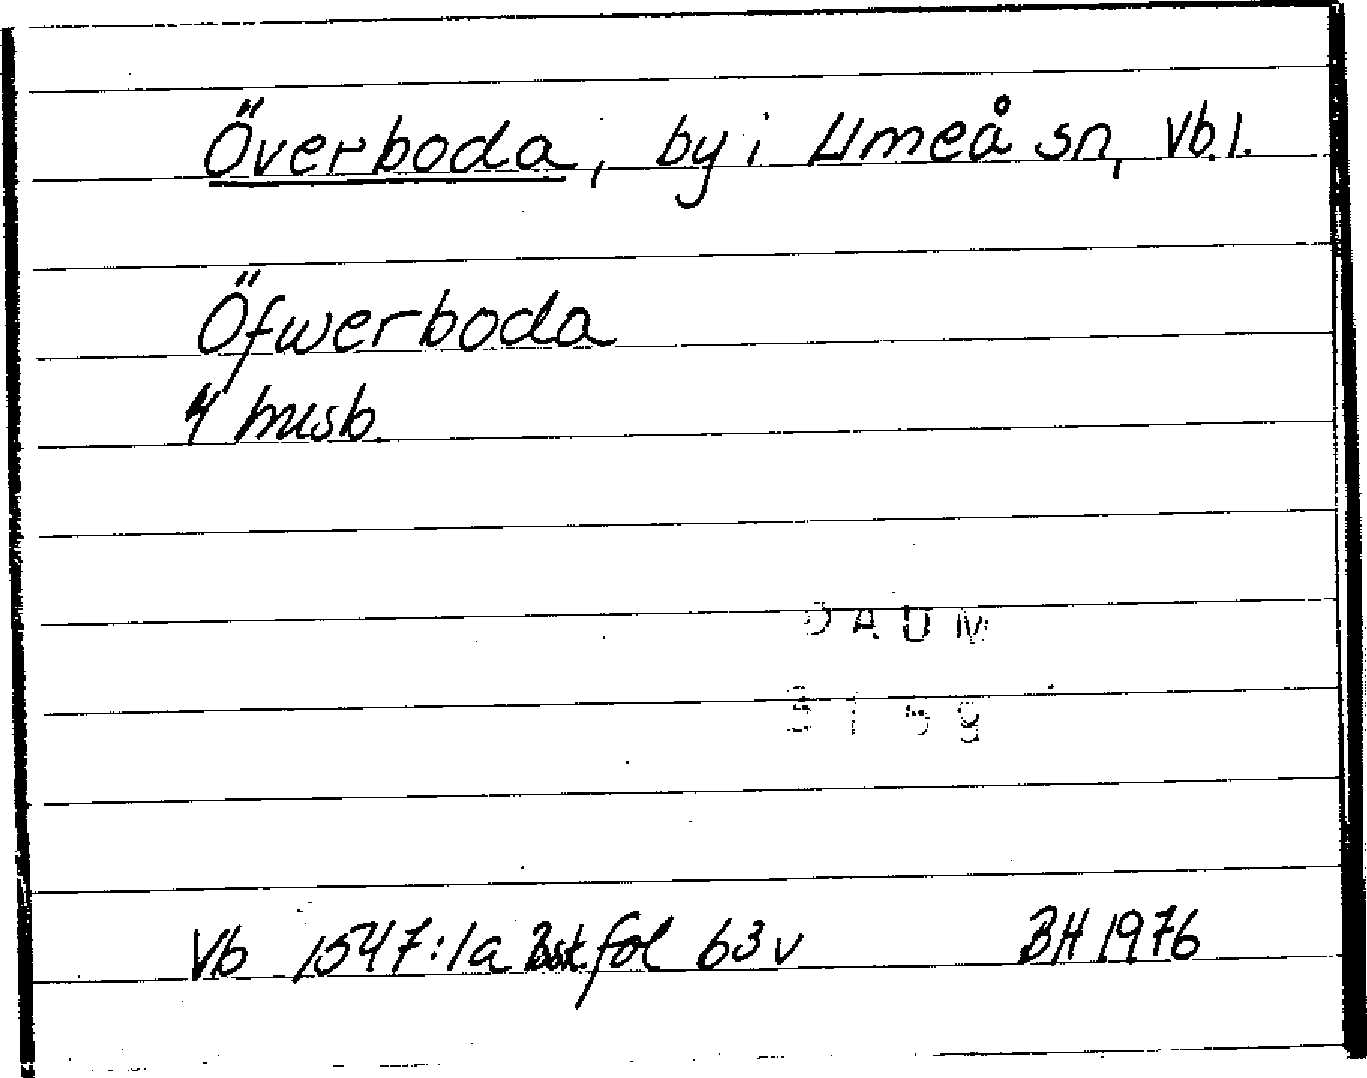 Överboda, by i Umeå sn, Vb.l.
Öfwerboda
4 husb.
DAUM
3159
Vb 1547:1a Bsk fol 63v BH 1976